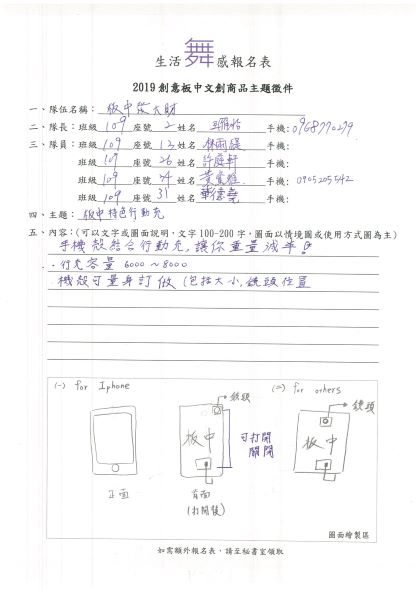 生活舞感報名表
2019創意板中文創商品主題徵件
一、隊伍名稱：板中發大財
二、隊長：班級 109 座號 2 姓名 手機：
三、隊員：班級 109 座號 13 姓名 手機：
班級 109 座號 26 姓名 許庭軒 手機：
班級 109 座號 姓名 手機：0905205542
班級 109 座號 31 姓名 手機：
四、主題：板中特色行動充
五、內容：(可以文字或圖面說明，文字 100-200 字，圖面以情境圖或使用方式圖為主)
手機殼結合行動充，讓你重量減半!
．行充容量 6000～8000
．機殼可量身訂做 (包括大小，鏡頭位置
(一) for Iphone
(二) for others
鏡頭
鏡頭
板中
可打開
關閉
板中
正面
背面
(打開製)
圖面繪製區
如需額外報名表，請至秘書室領取